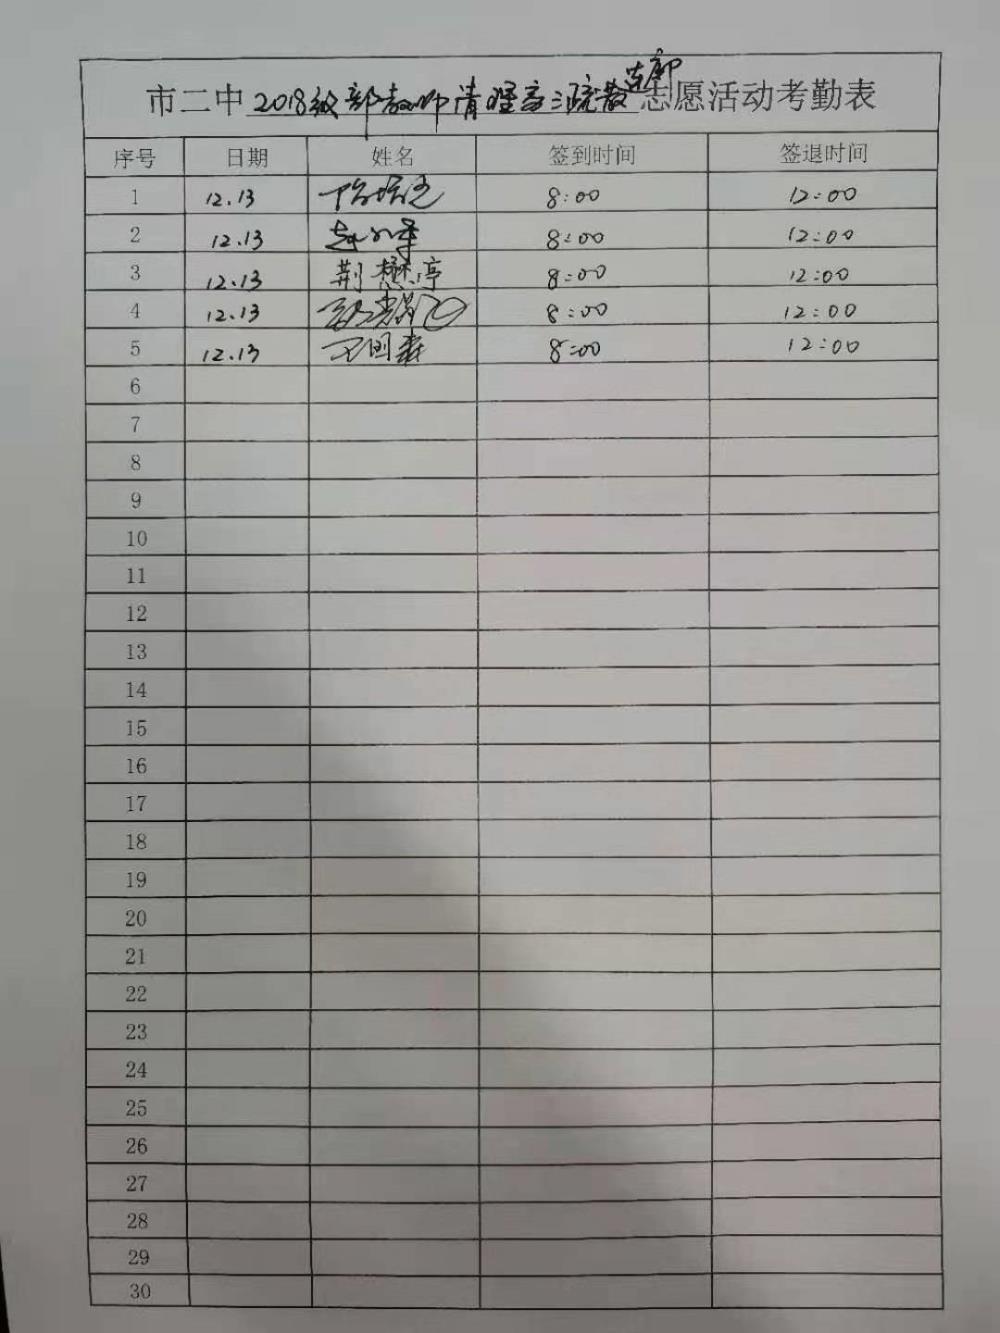 市二中2018级部教师清理高三疏散走廊志愿活动考勤表
序号 日期 姓名 签到时间 签退时间
1 12.13 8:00 12:00
2 12.13 8:00 12:00
3 12.13 荆懋淳 8:00 12:00
4 12.13 8:00 12:00
5 12.13 王国森 8:00 12:00
6
7
8
9
10
11
12
13
14
15
16
17
18
19
20
21
22
23
24
25
26
27
28
29
30